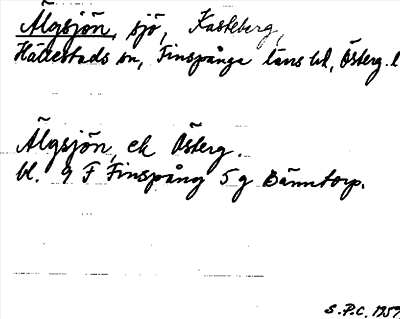 Älgsjön, sjö, Kasteberg,
Hällestads sn, Finspånga läns hd, Österg. l
Älgsjön, ek Österg.
bl. 9 F Finspång 5 g Bänntorp.
S.P.C. 1959